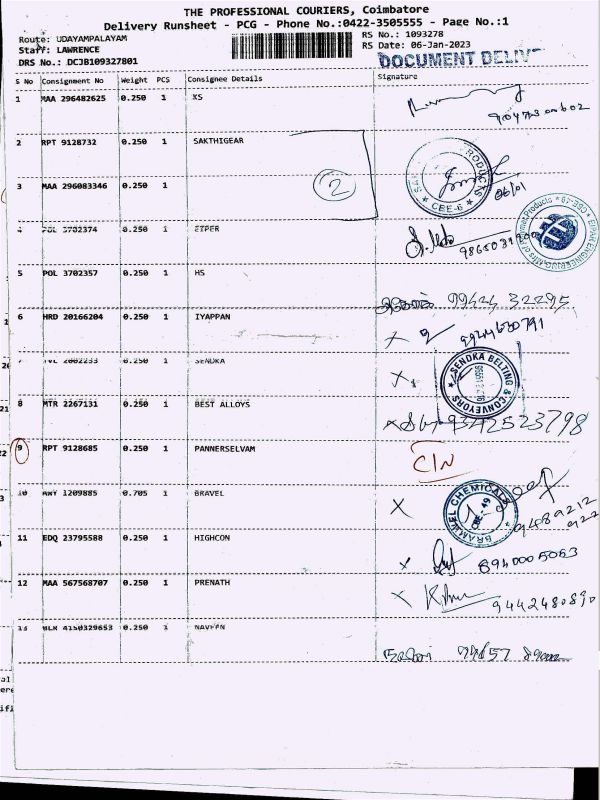 THE PROFESSIONAL COURIERS, Coimbatore
Delivery Runsheet - PCG - Phone No.:0422-3505555 - Page No.:1
Route: UDAYAMPALAYAM
RS No.: 1093278
Staff: LAWRENCE
RS Date: 06-Jan-2023
DRS No.: DCJB109327801
DOCUMENT DELIV
S No Consignment No Weight PCS Consignee Details Signature
1 MAA 296482625 0.250 1 KS
2 RPT 9128732 0.250 1 SAKTHIGEAR
PRODUCTS
CBE-6
06/01
3 MAA 296083346 0.250 1 2
4 POL 3702374 0.250 1 EIPER
5 POL 3702357 0.250 1 HS
99424 32295
6 HRD 20166204 0.250 1 IYAPPAN
X
7 TVL 2002233 0.250 1 SENDKA
X
SENDKA BELTING & CONVEYORS
8 MTR 2267131 0.250 1 BEST ALLOYS
X 9342523798
9 RPT 9128685 0.250 1 PANNERSELVAM
C/N
10 0.705 1 BRAVEL
X
CHEMICALS
CBE-49
9489212
922
11 EDQ 23795588 0.250 1 HIGHCON
X
12 MAA 567568707 0.250 1 PRENATH
X 9442480890
13 BLR 4150329653 0.250 1 NAVEEN